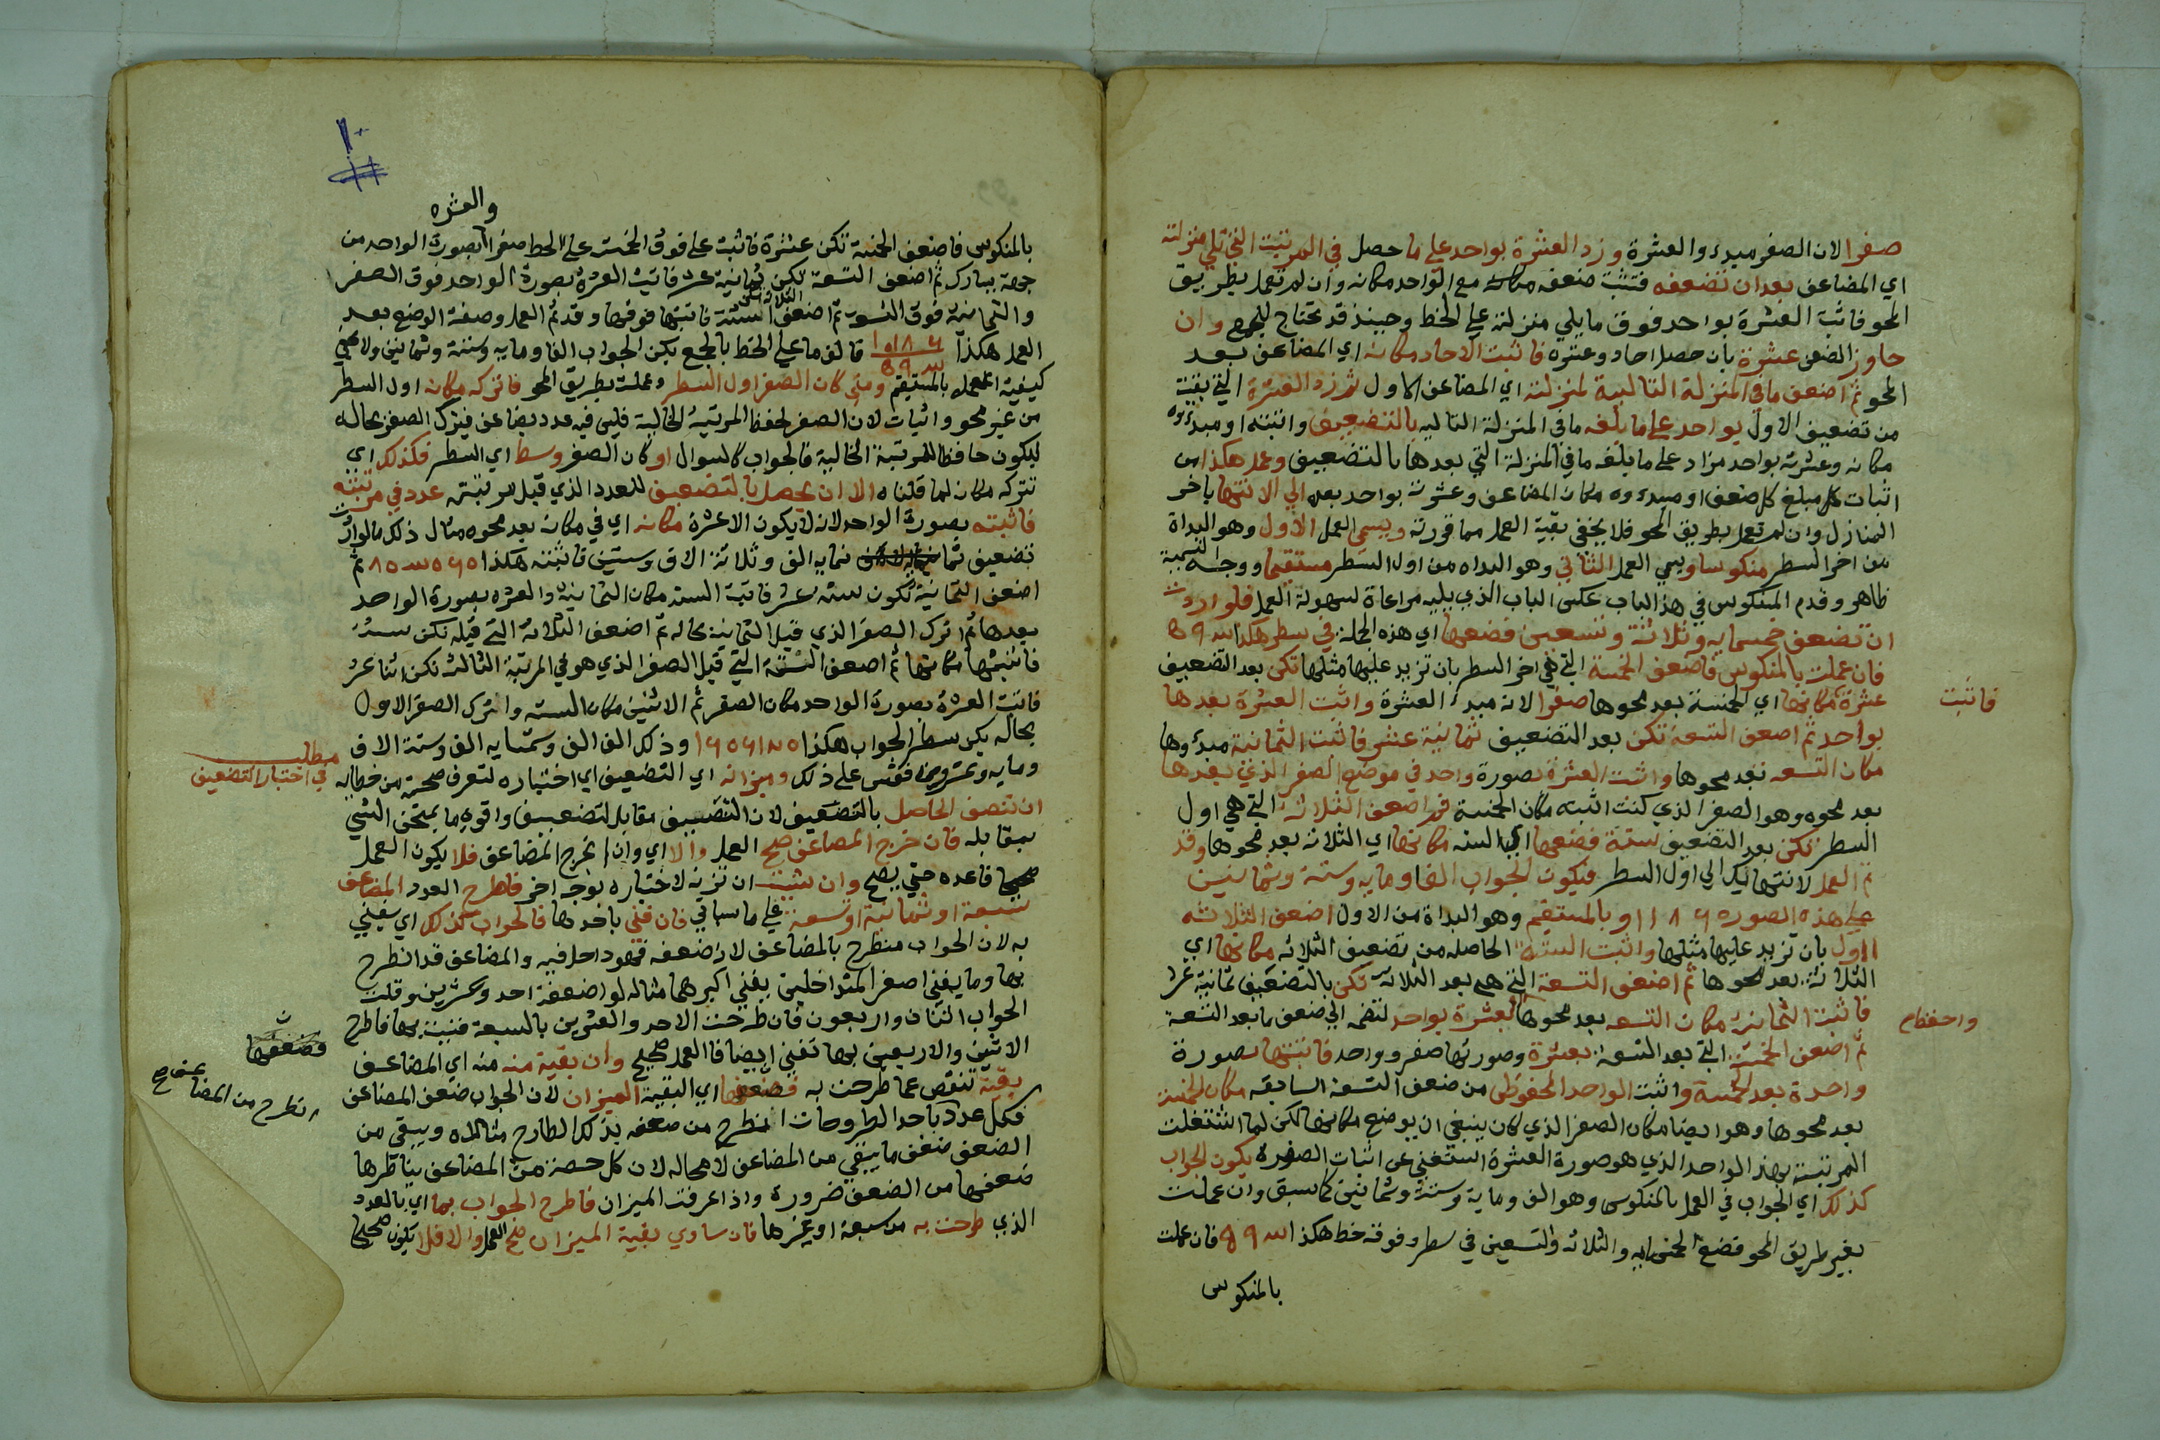 صفرا لان الصفر مبدء والعشرة وزد العشرة بواحد على ما حصل في المرتبة التي تلي منزلته
اي المضاعف بعد ان تضعفه فتثبت ضعفه مكانه مع الواحد مكانه وان لم تعمل بطريق
المحو فاثبت العشرة بواحد فوق ما يلي منزلته على الخط وحينئذ قد تحتاج للجمع وان
جاوز الضعف عشرة بان حصل احاد وعشره فاثبت الاحاد مكانه اي المضاعف بعد
المحو ثم اضعف ما في المنزلة التالية لمنزلته اي المضاعف الاول ثم زد العشرة التي بقيت
من تضعيف الاول بواحد على ما بلغه ما في المنزلة التاليه بالتضعيف واثبته او مبدءوه
مكانه وعشرته بواحد مزاد على ما بلغه ما في المنزلة التي بعدها بالتضعيف وعمل هكذا من
اثبات كل مبلغ كل ضعف او مبدءوه مكان المضاعف وعشرته بواحد بعده الى الانتها باخر
المنازل وان لم تعمل بطريق المحو فلا يخفى بقية العمل مما قررته ويسمى العمل الاول وهو البداة
من اخر السطر منكوسا ويسمى العمل الثاني وهو البداه من اول السطر مستقيما ووجه التسمية
ظاهر وقدم المنكوس في هذا الباب عكس الباب الذي يليه مراعاة لسهولة العمل فلو اردت
ان تضعف خمسمايه وثلاثة وتسعين فضعها اي هذه الجملة في سطر هكذا ٥٩٣
فان عملت بالمنكوس فاضعف الخمسة التي هي اخر السطر بان تزيد عليها مثلها تكن بعد التضعيف
فاثبت
عشرة مكانها اي الخمسة بعد محوها صفرا لانه مبدء العشرة واثبت العشرة بعدها
بواحد ثم اضعف التسعة تكن بعد التضعيف ثمانية عشر فاثبت الثمانية مبدءوها
مكان التسعه بعد محوها واثبت العشرة بصورة واحد في موضع الصفر الذي بعدها
بعد محوه وهو الصفر الذي كنت اثبته مكان الخمسة ثم اضعف الثلاثة التي هي اول
السطر تكن بعد التضعيف ستة فضعها اي السته مكانها اي الثلاثه بعد محوها وقد
تم العمل لانتهائك الى اول السطر فيكون الجواب الفا ومايه وستة وثمانين
على هذه الصوره ١١٨٦ او بالمستقيم وهو البداة من الاول اضعف الثلاثه
الاول بان تزيد عليها مثلها واثبت الستة الحاصله من تضعيف الثلاثه مكانها اي
الثلاثة بعد محوها ثم اضعف التسعة التي هي بعد الثلاثة تكن بالتضعيف ثمانية عشر
فاثبت الثمانية مكان التسعه بعد محوها واحفظ العشرة بواحد لتضمه الى ضعف ما بعد التسعة
واحفظ
ثم اضعف الخمسة التي بعد التسعة بعشرة وصورتها صفر وواحد فاثبتها بصورة
واحدة بعد الخمسة واثبت الواحد المحفوظ من ضعف التسعة السابقه مكان الخمسة
بعد محوها وهو ايضا مكان الصفر الذي كان ينبغي ان يوضع مكانها لكن لما اشتغلت
المرتبة بهذا الواحد الذي هو صورة العشرة استغنى عن اثبات الصفره يكون الجواب
كذلك اي الجواب في العمل بالمنكوس وهو الف وماية وستة وثمانين كما سبق وان عملت
بغير طريق المحو فضع الخمسمايه والثلاثه والتسعين في سطر وفوقه خط هكذا ٥٩٣ فان عملت
بالمنكوس
والعشره
بالمنكوس فاضعف الخمسة تكن عشرة فاثبت على فوق الخمسة على الخط صفرا بصورة الواحد من
جهة يسارك ثم اضعف التسعة تكن ثمانية عشر فاثبت العشرة بصورة الواحد فوق الصفر
والثمانية فوق التسعة ثم اضعف الثلاثة تكن ستة فاثبتها فوقها وقد تم العمل وصفة الوضع بعد
العمل هكذا فالق ما على الخط بالجمع يكن الجواب الفا ومايه وستة وثمانين ولا يخفى
كيفية العمل بالمستقيم ومتى كان الصفر اول السطر وعملت بطريق المحو فاتركه مكانه اول السطر
من غير محو واثبات لان الصفر لحفظ المرتبة الخالية فليس فيه عدد يضاعف فيترك الصفر بحاله
ليكون حافظا للمرتبة الخالية فالجواب كالسوال او كان الصفر وسط اي السطر فكذلك اي
تتركه مكانه لما قلناه الا ان يحصل بالتضعيف للعدد الذي قبل مرتبته عدد في مرتبته
فاثبته بصورة الواحد لانه لا يكون الا عشرة مكانه اي في مكانه بعد محوه مثال ذلك ما لو اردت
تضعيف ثمانمايه الف وثلاثة الاف وستين فاثبته هكذا ثم
اضعف الثمانية تكون سته عشر فاثبت السته مكان الثمانية والعشره بصورة الواحد
بعدها ثم اترك الصفر الذي قبل الثمانية بحاله ثم اضعف الثلاثة التي قبله تكن ستة
فاثبتها مكانها ثم اضعف الستة التي قبل الصفر الذي هو في المرتبة الثالثة تكن اثنا عشر
فاثبت العشرة بصورة الواحد مكان الصفر ثم الاثنين مكان السته واترك الصفر الاول
بحاله يكن سطر الجواب هكذا وذلك الف الف وستمايه الف وستة الاف
ومايه وعشرون فقس على ذلك وميزانه اي التضعيف اي اختباره لتعرف صحته من خطايه
مطلب
في اختبار التضعيف
ان تنصف الحاصل بالتضعيف لان التنصيف مقابل لتضعيف واقوى ما يمتحن الشي
بمقابله فان خرج المضاعف صح العمل والا اي وان لم يخرج المضاعف فلا يكون العمل
صحيحا فاعده حتى يصح وان شئت ان تزنه لاختباره بوجه اخر فاطرح العدد المضاعف
سبعة او ثمانية او تسعة على ما سياتي فان فني باحدها فالجواب كذلك اي يفنى
به لان الجواب منطرح بالمضاعف لانه ضعفه فهو داخل فيه والمضاعف قد انطرح
بها وما يفني اصغر المتداخلين يفني اكبرهما مثاله لو اضعفت احد وعشرين وقلت
الجواب اثنان واربعون فان طرحت الاحد والعشرين بالسبعة فنيت بها فاطرح
الاثنين والاربعين بها تفنى ايضا فالعمل صحيح وان بقية منه منه اي المضاعف
فضعفها
بقية تنقص عما طرحت به فضعفها اي البقية الميزان لان الجواب ضعف المضاعف
انطرح من المضاعف صح
فكل عدد باحد المطروحات انطرح من ضعفه بذلك الطارح مثلاه ويبقى من
الضعف ضعف ما يبقى من المضاعف لا محاله لان كل حصة من المضاعف يناظرها
ضعفها من الضعف ضروره واذا عرفت الميزان فاطرح الجواب بما اي بالعدد
الذي طرحت به من سبعة او غيرها فان ساوى بقية الميزان صح العمل والا فلا يكون صحيحا